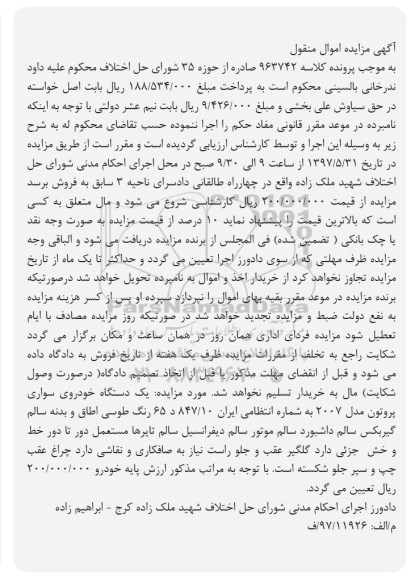 آگهی مزایده اموال منقول
به موجب پرونده کلاسه ۹۶۳۷۴۲ صادره از حوزه ۳۵ شورای حل اختلاف محکوم علیه داود
ندرخانی بالسینی محکوم است به پرداخت مبلغ ۱۸۸/۵۳۴/۰۰۰ ریال بابت اصل خواسته
در حق سیاوش علی بخشی و مبلغ ۹/۴۲۶/۰۰۰ ریال بابت نیم عشر دولتی با توجه به اینکه
نامبرده در موعد مقرر قانونی مفاد حکم را اجرا ننموده حسب تقاضای محکوم له به شرح
زیر به وسیله این اجرا و توسط کارشناس ارزیابی گردیده است و مقرر است از طریق مزایده
در تاریخ ۱۳۹۷/۵/۳۱ از ساعت ۹ الی ۹/۳۰ صبح در محل اجرای احکام مدنی شورای حل
اختلاف شهید ملک زاده واقع در چهارراه طالقانی دادسرای ناحیه ۳ سابق به فروش برسد
مزایده از قیمت ۲۰۰/۰۰۰/۰۰۰ ریال کارشناسی شروع می شود و مال متعلق به کسی
است که بالاترین قیمت را پیشنهاد نماید ۱۰ درصد از قیمت مزایده به صورت وجه نقد
یا چک بانکی ( تضمین شده) فی المجلس از برنده مزایده دریافت می شود و الباقی وجه
مزایده ظرف مهلتی که از سوی دادورز اجرا تعیین می گردد و حداکثر تا یک ماه از تاریخ
مزایده تجاوز نخواهد کرد از خریدار اخذ و اموال به نامبرده تحویل خواهد شد درصورتیکه
برنده مزایده در موعد مقرر بقیه بهای اموال را نپردازد سپرده او پس از کسر هزینه مزایده
به نفع دولت ضبط و مزایده تجدید خواهد شد در صورتیکه روز مزایده مصادف با ایام
تعطیل شود مزایده فردای اداری همان روز در همان ساعت و مکان برگزار می گردد
شکایت راجع به تخلف از مقررات مزایده ظرف یک هفته از تاریخ فروش به دادگاه داده
می شود و قبل از انقضای مهلت مذکور یا قبل از اتخاذ تصمیم دادگاه( درصورت وصول
شکایت) مال به خریدار تسلیم نخواهد شد. مورد مزایده: یک دستگاه خودروی سواری
پروتون مدل ۲۰۰۷ به شماره انتظامی ایران ۸۴۷/۱۰ د ۶۵ رنگ طوسی اطاق و بدنه سالم
گیربکس سالم داشبورد سالم موتور سالم دیفرانسیل سالم تایرها مستعمل دور تا دور خط
و خش جزئی دارد گلگیر عقب و جلو راست نیاز به صافکاری و نقاشی دارد چراغ عقب
چپ و سپر جلو شکسته است. با توجه به مراتب مذکور ارزش پایه خودرو ۲۰۰/۰۰۰/۰۰۰
ریال تعیین می گردد.
دادورز اجرای احکام مدنی شورای حل اختلاف شهید ملک زاده کرج - ابراهیم زاده
م/الف: ۹۷/۱۱۹۲۶/ف
ParsNamadData